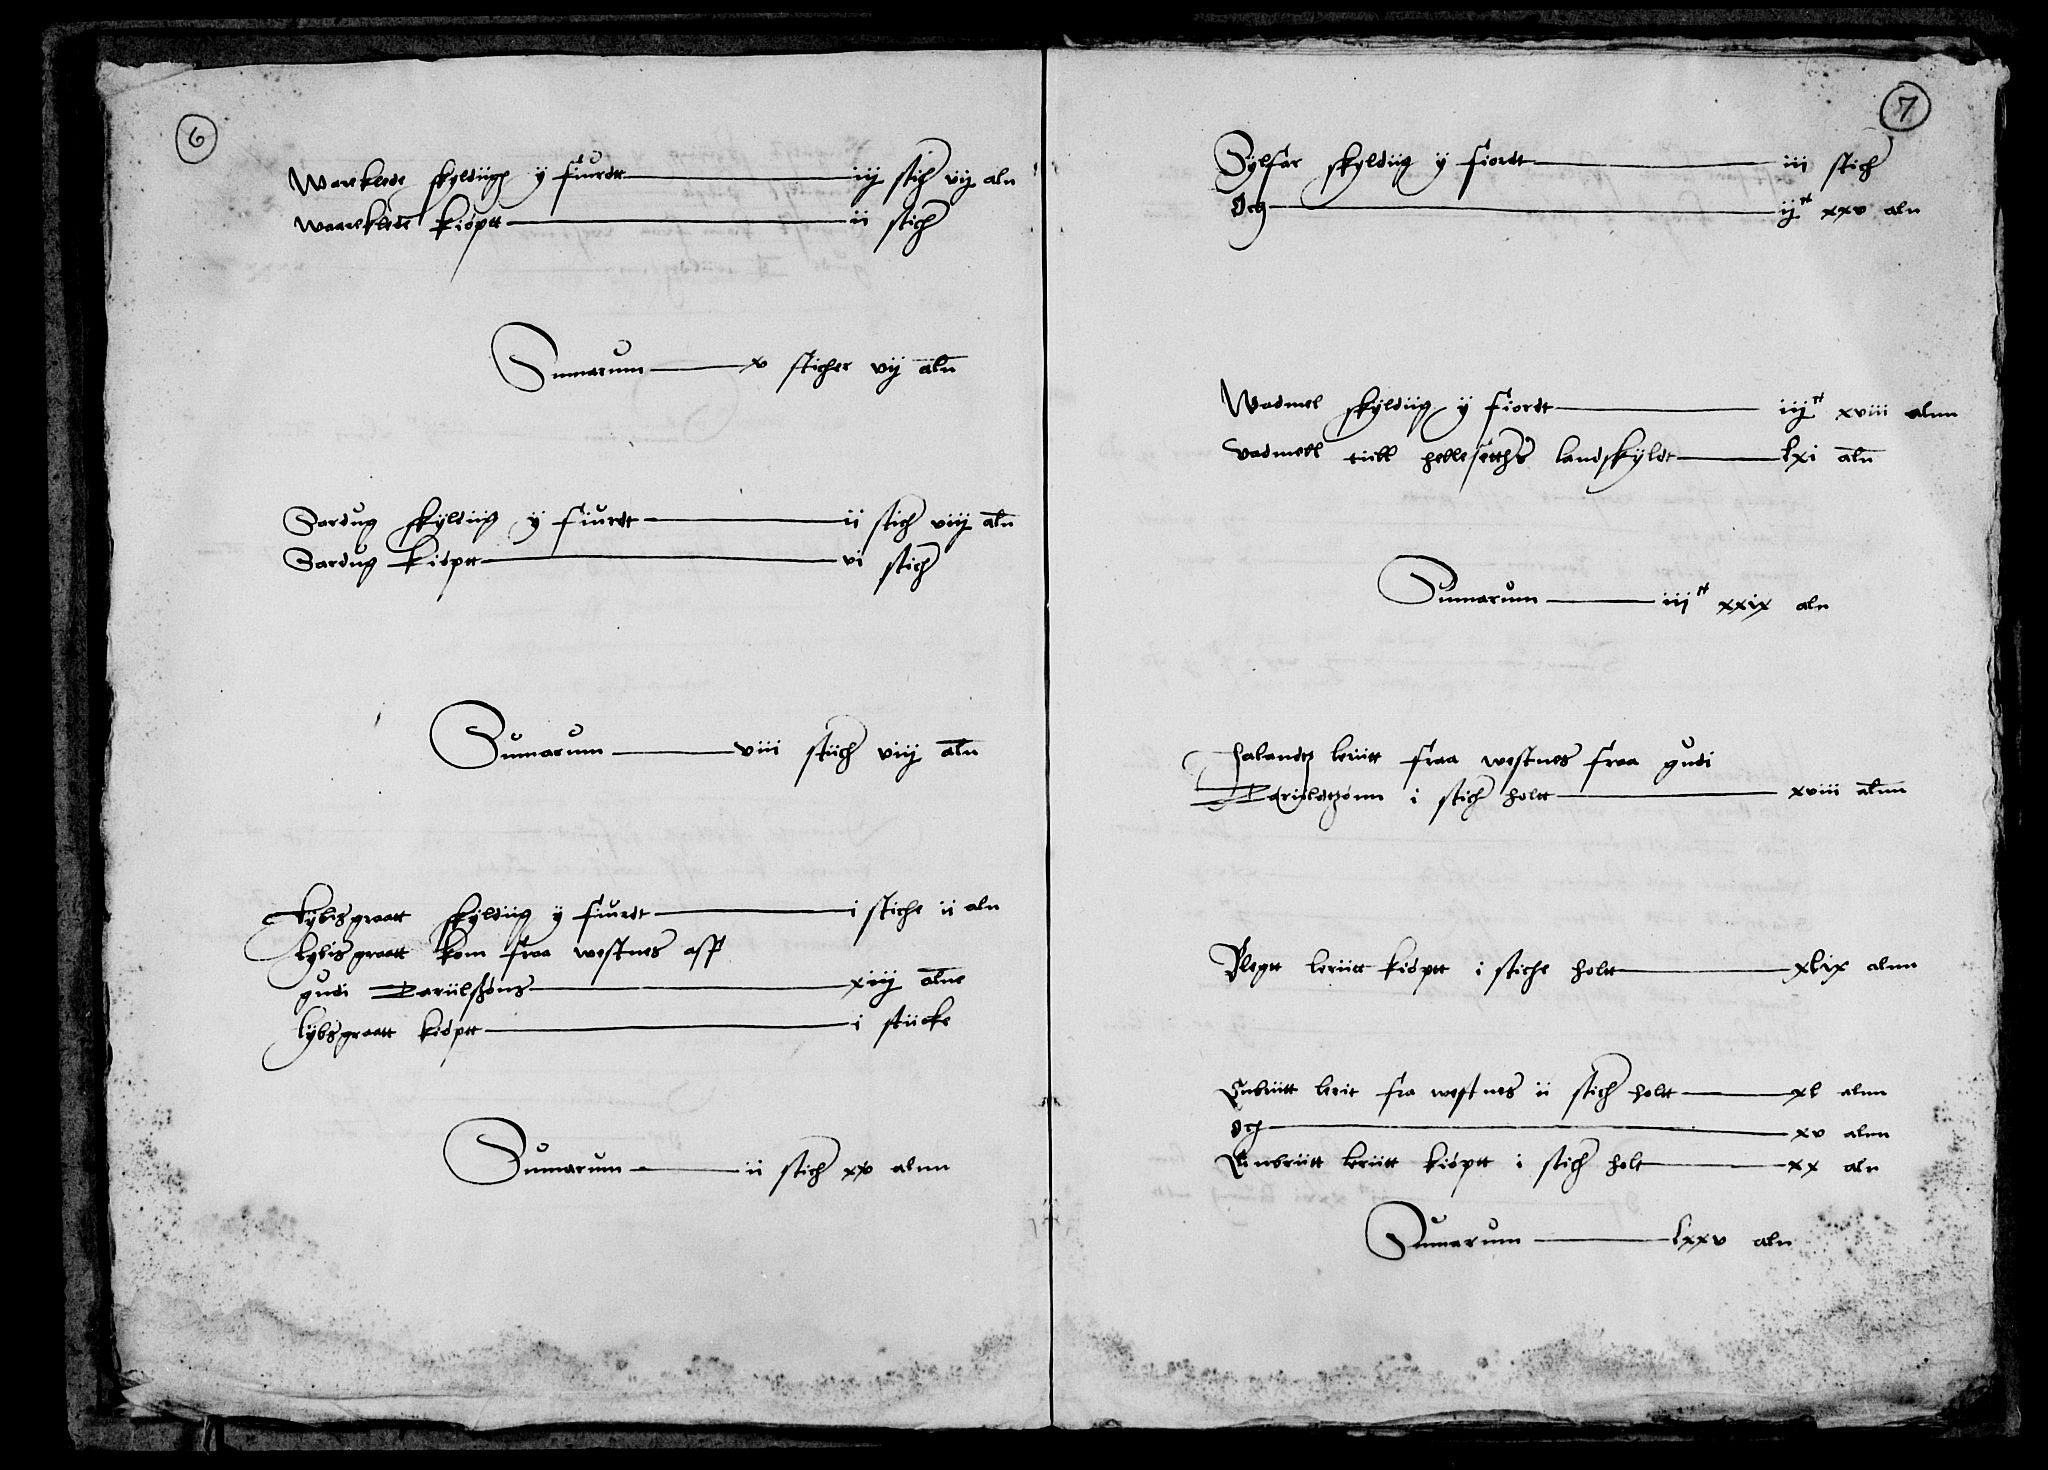 6
Warklede skyldiig y fiurdt iij stich vij aln
waarklede kiöptt ii stich
Sumarum x sticher vij aln
Sardug skyldiig y fiurdt ii stich viij aln
Sardug kiöptt vi stich
Sumarum viii stiich viij aln
lybisgraatt skyldiig y fiurdt i stiche ii aln
lybisgraatt kom fraa westnes aff
gudi xiiij alne
lybsgraatt kiöptt i stücke
Sumarum ii stich xv alnn
7
Sylfar skyldiig y fiordt iii stich
Och ij xxv aln
Wadmel skyldiig y fiordt iij xviii alnn
vadmell tiill helle setthers landskyldt lxi aln
Sumarum iiij xxix aln
halandtz leriitt fraa westnes fraa gudi
i stich holtt xviii alnn
Plegtt leriitt kiöptt i stiche holtt xlix alnn
Enbriitt lerit fra westnes ii stich holtt xl alnn
Och xv alnn
Einbriitt leriitt kiöptt i stich holt xx aln
Sumarum lxxv aln